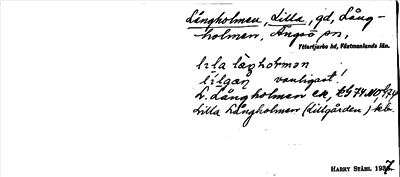 Långholmen, Lilla, gd, Lång-
holmen, Ängsö sn,
Yttertjurbo hd, Västmanlands län.
lɩla låŋhɔlman
lílgæṇ vanligast!
L. Långholmen ek,
Lilla Långholmen (Lillgården) kb.
HARRY STÅHL 1937.